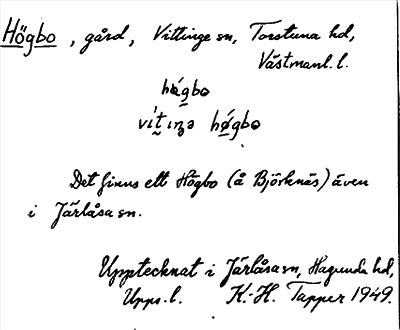 Högbo, gård, Vittinge sn, Torstuna hd,
Västmanl. l.
hǿgbo
vít̰ıŋə hǿgbo
Det finns ett Högbo (å Björknäs) även
i Järlåsa sn.
Upptecknat i Järlåsa sn, Hagunda hd,
Upps. l. K.-H. Tapper 1949.